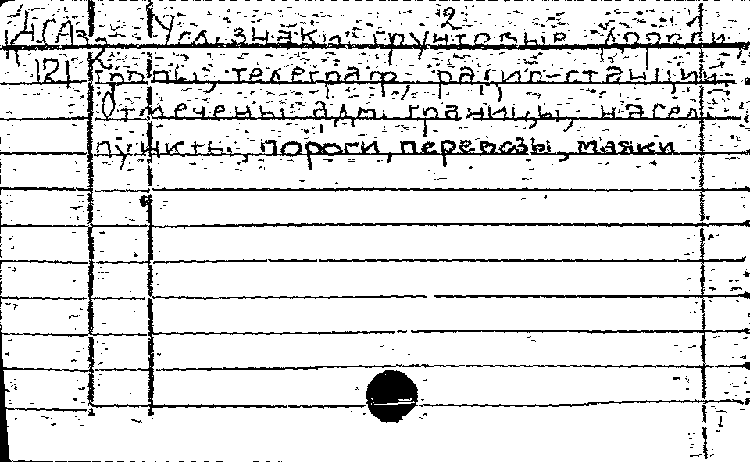 2
Усл. знаки: грунтовые дороги,
121 тропы, телеграф, радио-станции.
Отмечены адм. границы, насел.
пункты, пороги, перевозы, маяки